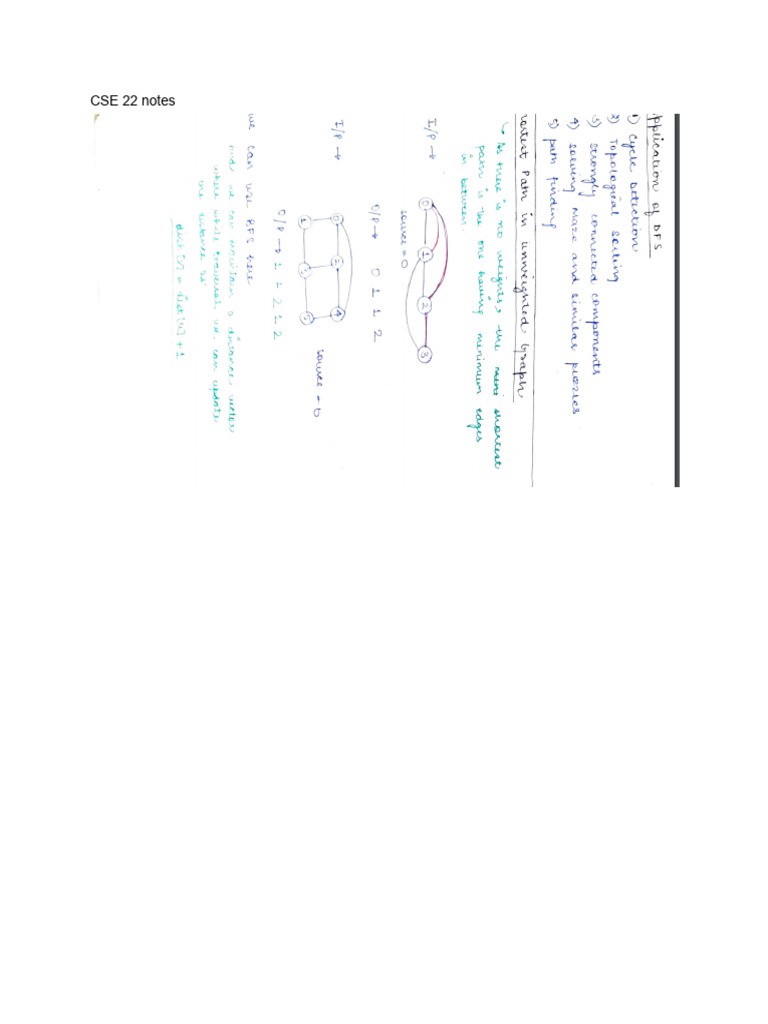 CSE 22 notes
pplication of DFS
1) Cycle Detection
2) Topological Sorting
3) Strongly connected components
4) solving maze and similar puzzles
5) path finding
ortest Path in Unweighted Graph
↳ As there is no weights, the shortest
path is the one having minimum edges
in between.
I/P →
0
1
2
3
source = 0
O/P → 0 1 1 2
I/P →
0
4
1
5
source = 0
O/P → 1 1 2 1 2
we can use BFS here
we can maintain a distance vector
where while traversal we can update
the distance as
dist[v] = dist[u] + 1